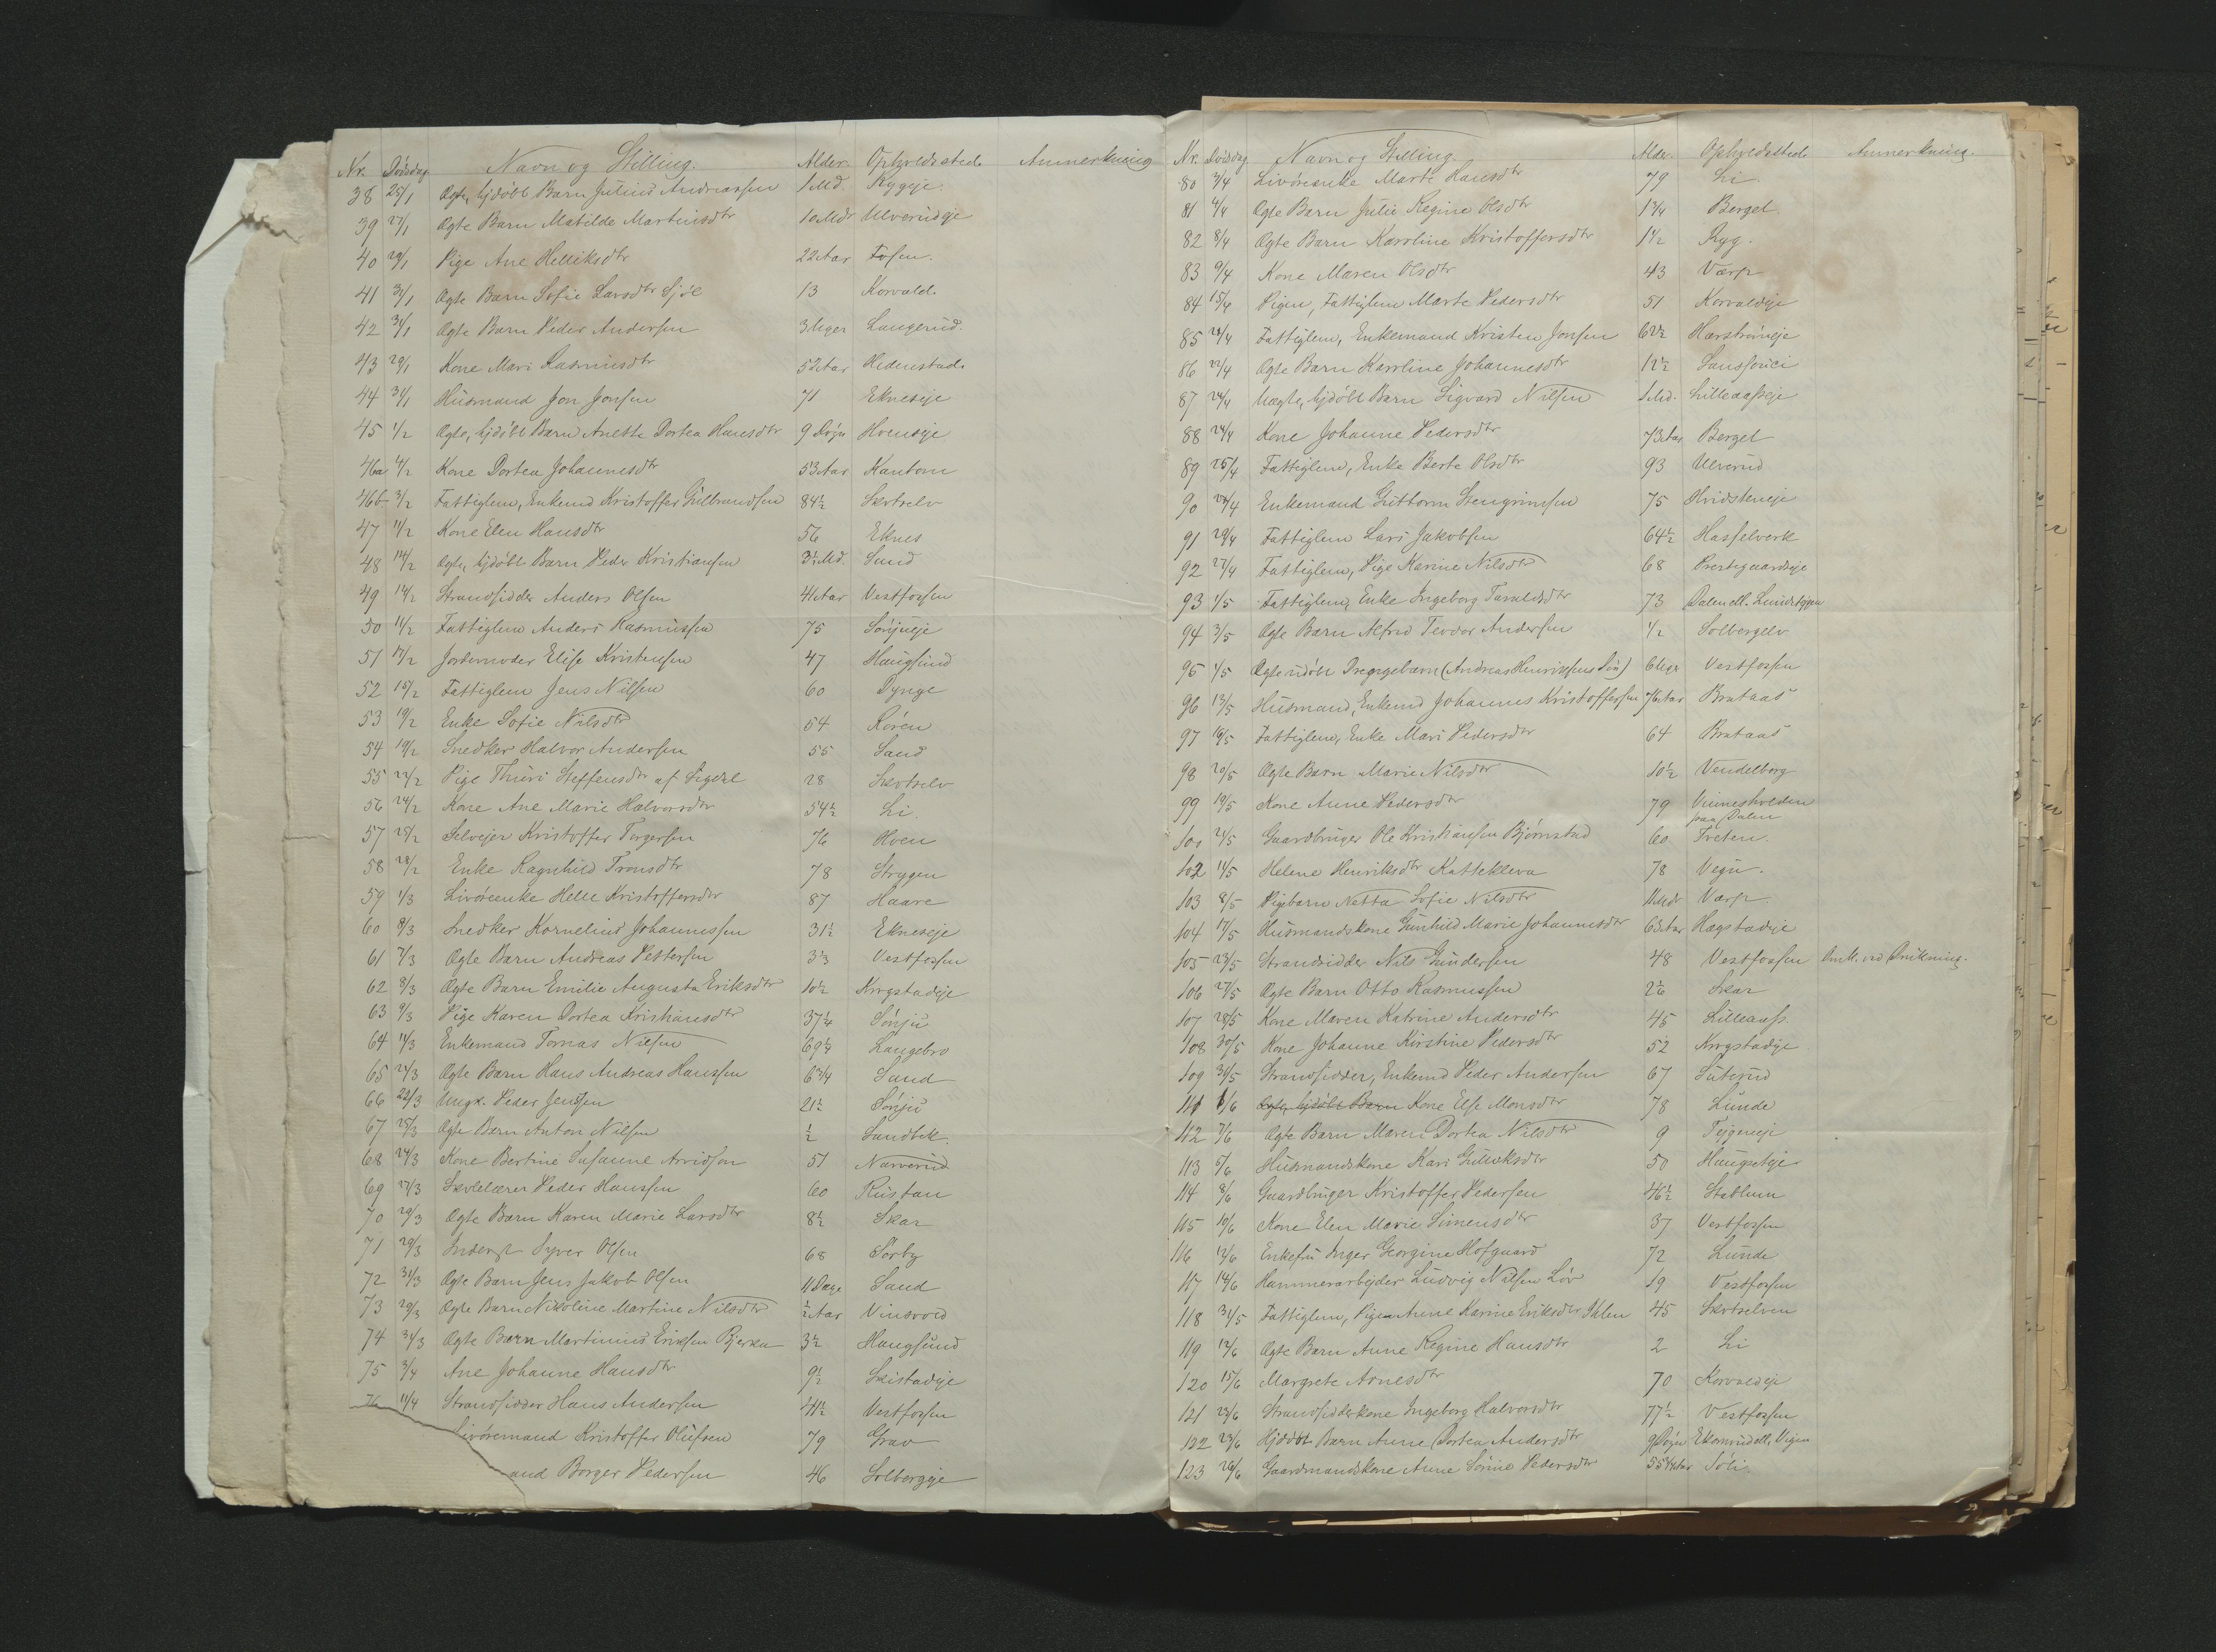 Nr. Dödsdag Navn og Stilling. Alder. Opholdssted. Anmerkning
38 25/1 Ægte, hjdöbt Barn Julius Andreassen 1 Md. Rygeje.
39 27/1 Ægte Barn Matilde Martinsdtr 10 Mdr Ulverudeje
40 29/1 Pige Ane Helliksdtr 22 Aar Fosen.
41 31/1 Ægte Barn Sofie Larsdtr Sjöl 13 Korvald.
42 31/1 Ægte Barn Peder Andersen 3 Uger Langerud.
43 29/1 Kone Mari Rasmusdtr 52 Aar Hedenstad.
44 31/1 Husmand Jon Jonsen 71 Ekneseje
45 1/2 Ægte, hjdöbt Barn Anette Dortea Hansdtr 9 Dögn Hoenseje
46a 4/2 Kone Dortea Johannesdtr 53 Aar Kantom
46b 3/2 Fattiglem, Enkemd Kristoffer Gulbrandsen 84½ Skotselv
47 11/2 Kone Elen Hansdtr 56 Eknes
48 14/2 Ægte, hjdöbt Barn Peder Kristiansen 3½ Md. Sand
49 14/2 Strandsidder Anders Olsen 41 Aar Vestfossen
50 11/2 Fattiglem Anders Rasmussen 75 Sönjueje
51 17/2 Jordemoder Elise Kristensen 47 Haugsund
52 15/2 Fattiglem Jens Nilsen 60 Dynge
53 19/2 Enke Sofie Nilsdtr 54 Rören
54 19/2 Snedker Halvor Andersen 55 Sand
55 22/2 Pige Thuri Steffensdtr af Sigdal 28 Skotselv
56 24/2 Kone Ane Marie Halvorsdtr 54½ Li.
57 25/2 Selvejer Kristoffer Torgersen 76 Hoen
58 28/2 Enke Ragnhild Tronsdtr 78 Strygen
59 1/3 Livöreenke Helle Kristoffersdtr 87 Haare
60 8/3 Snedker Kornelius Johannessen 31½ Ekneseje
61 7/3 Ægte Barn Andreas Pettersen 3⅓ Vestfossen
62 8/3 Ægte Barn Emilie Augusta Eriksdtr 10½ Krogstadeje
63 9/3 Pige Karen Dortea Kristiansdtr 37¼ Sönju
64 11/3 Enkemand Tomas Nilsen 69¼ Langebro
65 24/3 Ægte Barn Hans Andreas Hansen 6¾ Sand
66 22/3 Ungk. Peder Jensen 21½ Sönju
67 25/3 Ægte Barn Anton Nilsen ½ Sandbek.
68 24/3 Kone Bertine Susanne Arvidson 51 Narverud
69 27/3 Skolelærer Peder Hansen 60 Rustan
70 29/3 Ægte Barn Karen Marie Larsdtr 8½ Skar
71 29/3 Inderst Syver Olsen 68 Sörby
72 31/3 Ægte Barn Jens Jakob Olsen 11 Dage Sand
73 29/3 Ægte Barn Nikoline Martine Nilsdtr ½ Aar Vinsvold
74 31/3 Ægte Barn Martinius Eriksen Bjerke 3½ Haugsund
75 3/4 Ane Johanne Hansdtr 9½ Skistadeje
76 11/4 Strandsidder Hans Andersen 41½ Vestfossen
Livöremand Kristoffer Olufsen 79 Grav
and Borger Pedersen 46 Solbergeje
Nr. Dödsdag Navn og Stilling. Alder. Opholdssted. Anmerkning.
80 3/4 Livöreenke Marte Hansdtr 79 Li.
81 4/4 Ægte Barn Julie Regine Olsdtr 1¾ Berget.
82 8/4 Ægte Barn Karoline Kristoffersdtr 1½ Ryg.
83 9/4 Kone Maren Olsdtr 43 Værp
84 15/4 Pigen, Fattiglem Marte Pedersdtr 51 Korvaldeje
85 24/4 Fattiglem, Enkemand Kristen Jonsen 62½ Harströmeje
86 22/4 Ægte Barn Karoline Johannesdtr 12½
87 24/4 Uægte, hjdöbt Barn Sigvard Nilsen 1 Md. Lilleaaseje
88 24/4 Kone Johanne Pedersdtr 73 Aar Berget
89 25/4 Fattiglem, Enke Berte Olsdtr 93 Ulverud
90 24/4 Enkemand Guttorm Stengrimsen 75 Hvidsteneje
91 29/4 Fattiglem Lars Jakobsen 64½ Hasselverk
92 27/4 Fattiglem, Pige Karine Nilsdtr 68 Prestegaardseje
93 1/5 Fattiglem, Enke Ingeborg Taraldsdtr 73 Dalen ell. Lundsteppen
94 3/5 Ægte Barn Alfred Teodor Andersen ½ Solbergelv
95 1/5 Ægte udöbt Drengebarn (Andreas Henriksens Sön) 6 Uger Vestfossen
96 13/5 Husmand, Enkemd Johannes Kristoffersen 76 Aar Brataas
97 16/5 Fattiglem, Enke Mari Pedersdtr 64 Brataas
98 20/5 Ægte Barn Marie Nilsdtr 10½ Vendelborg
99 19/5 Kone Anne Pedersdtr 79 Vinnesholden
paa Dalen
100 21/5 Gaardbruger Ole Kristiansen Björnstad 60 Tveten.
102 11/5 Helene Henriksdtr Kattekleva 78 Vegu.
103 8/5 Pigebarn Netta Sofie Nilsdtr 11 Mdr Værp.
104 17/5 Husmandskone Gunhild Marie Johannesdtr 63 Aar Hægstadeje
105 23/5 Strandsidder Nils Gundersen 48 Vestfossen Omk. ved Drukning.
106 27/5 Ægte Barn Otto Rasmussen 2⅙ Skar
107 28/5 Kone Maren Katrine Andersdtr 45 Lilleaas.
108 30/5 Kone Johanne Kirstine Pedersdtr 52 Krogstadeje
109 31/5 Strandsidder, Enkemd Peder Andersen 67 Suterud
111 1/6 Ægte, hjdöbt Barn Kone Else Monsdtr 78 Lunde
112 7/6 Ægte Barn Maren Dortea Nilsdtr 9 Teigeneje
113 5/6 Husmandskone Kari Gulliksdtr 50 Haugseteje
114 8/6 Gaardbruger Kristoffer Pedersen 46½ Stablum
115 10/6 Kone Elen Marie Simensdtr 37 Vestfossen
116 12/6 Enkefru Inger Georgine Hofgaard 72 Lunde
117 14/6 Hammerarbejder Ludvig Nilsen Löv 19 Vestfossen
118 31/5 Fattiglem, Pigen Anne Karine Eriksdtr Ihlen 45 Skotselven
119 12/6 Ægte Barn Anne Regine Hansdtr 2 Li
120 15/6 Margrete Arnesdtr 70 Korvaldeje
121 23/6 Strandsidderkone Ingeborg Halvorsdtr 77½ Vestfossen
122 23/6 Hjdöbt Barn Anne Dortea Andersdtr 9 Dögn Ekornrud ell. Vegu
123 26/6 Gaardmandskone Anne Sörine Pedersdtr 55¾ Aar Soli